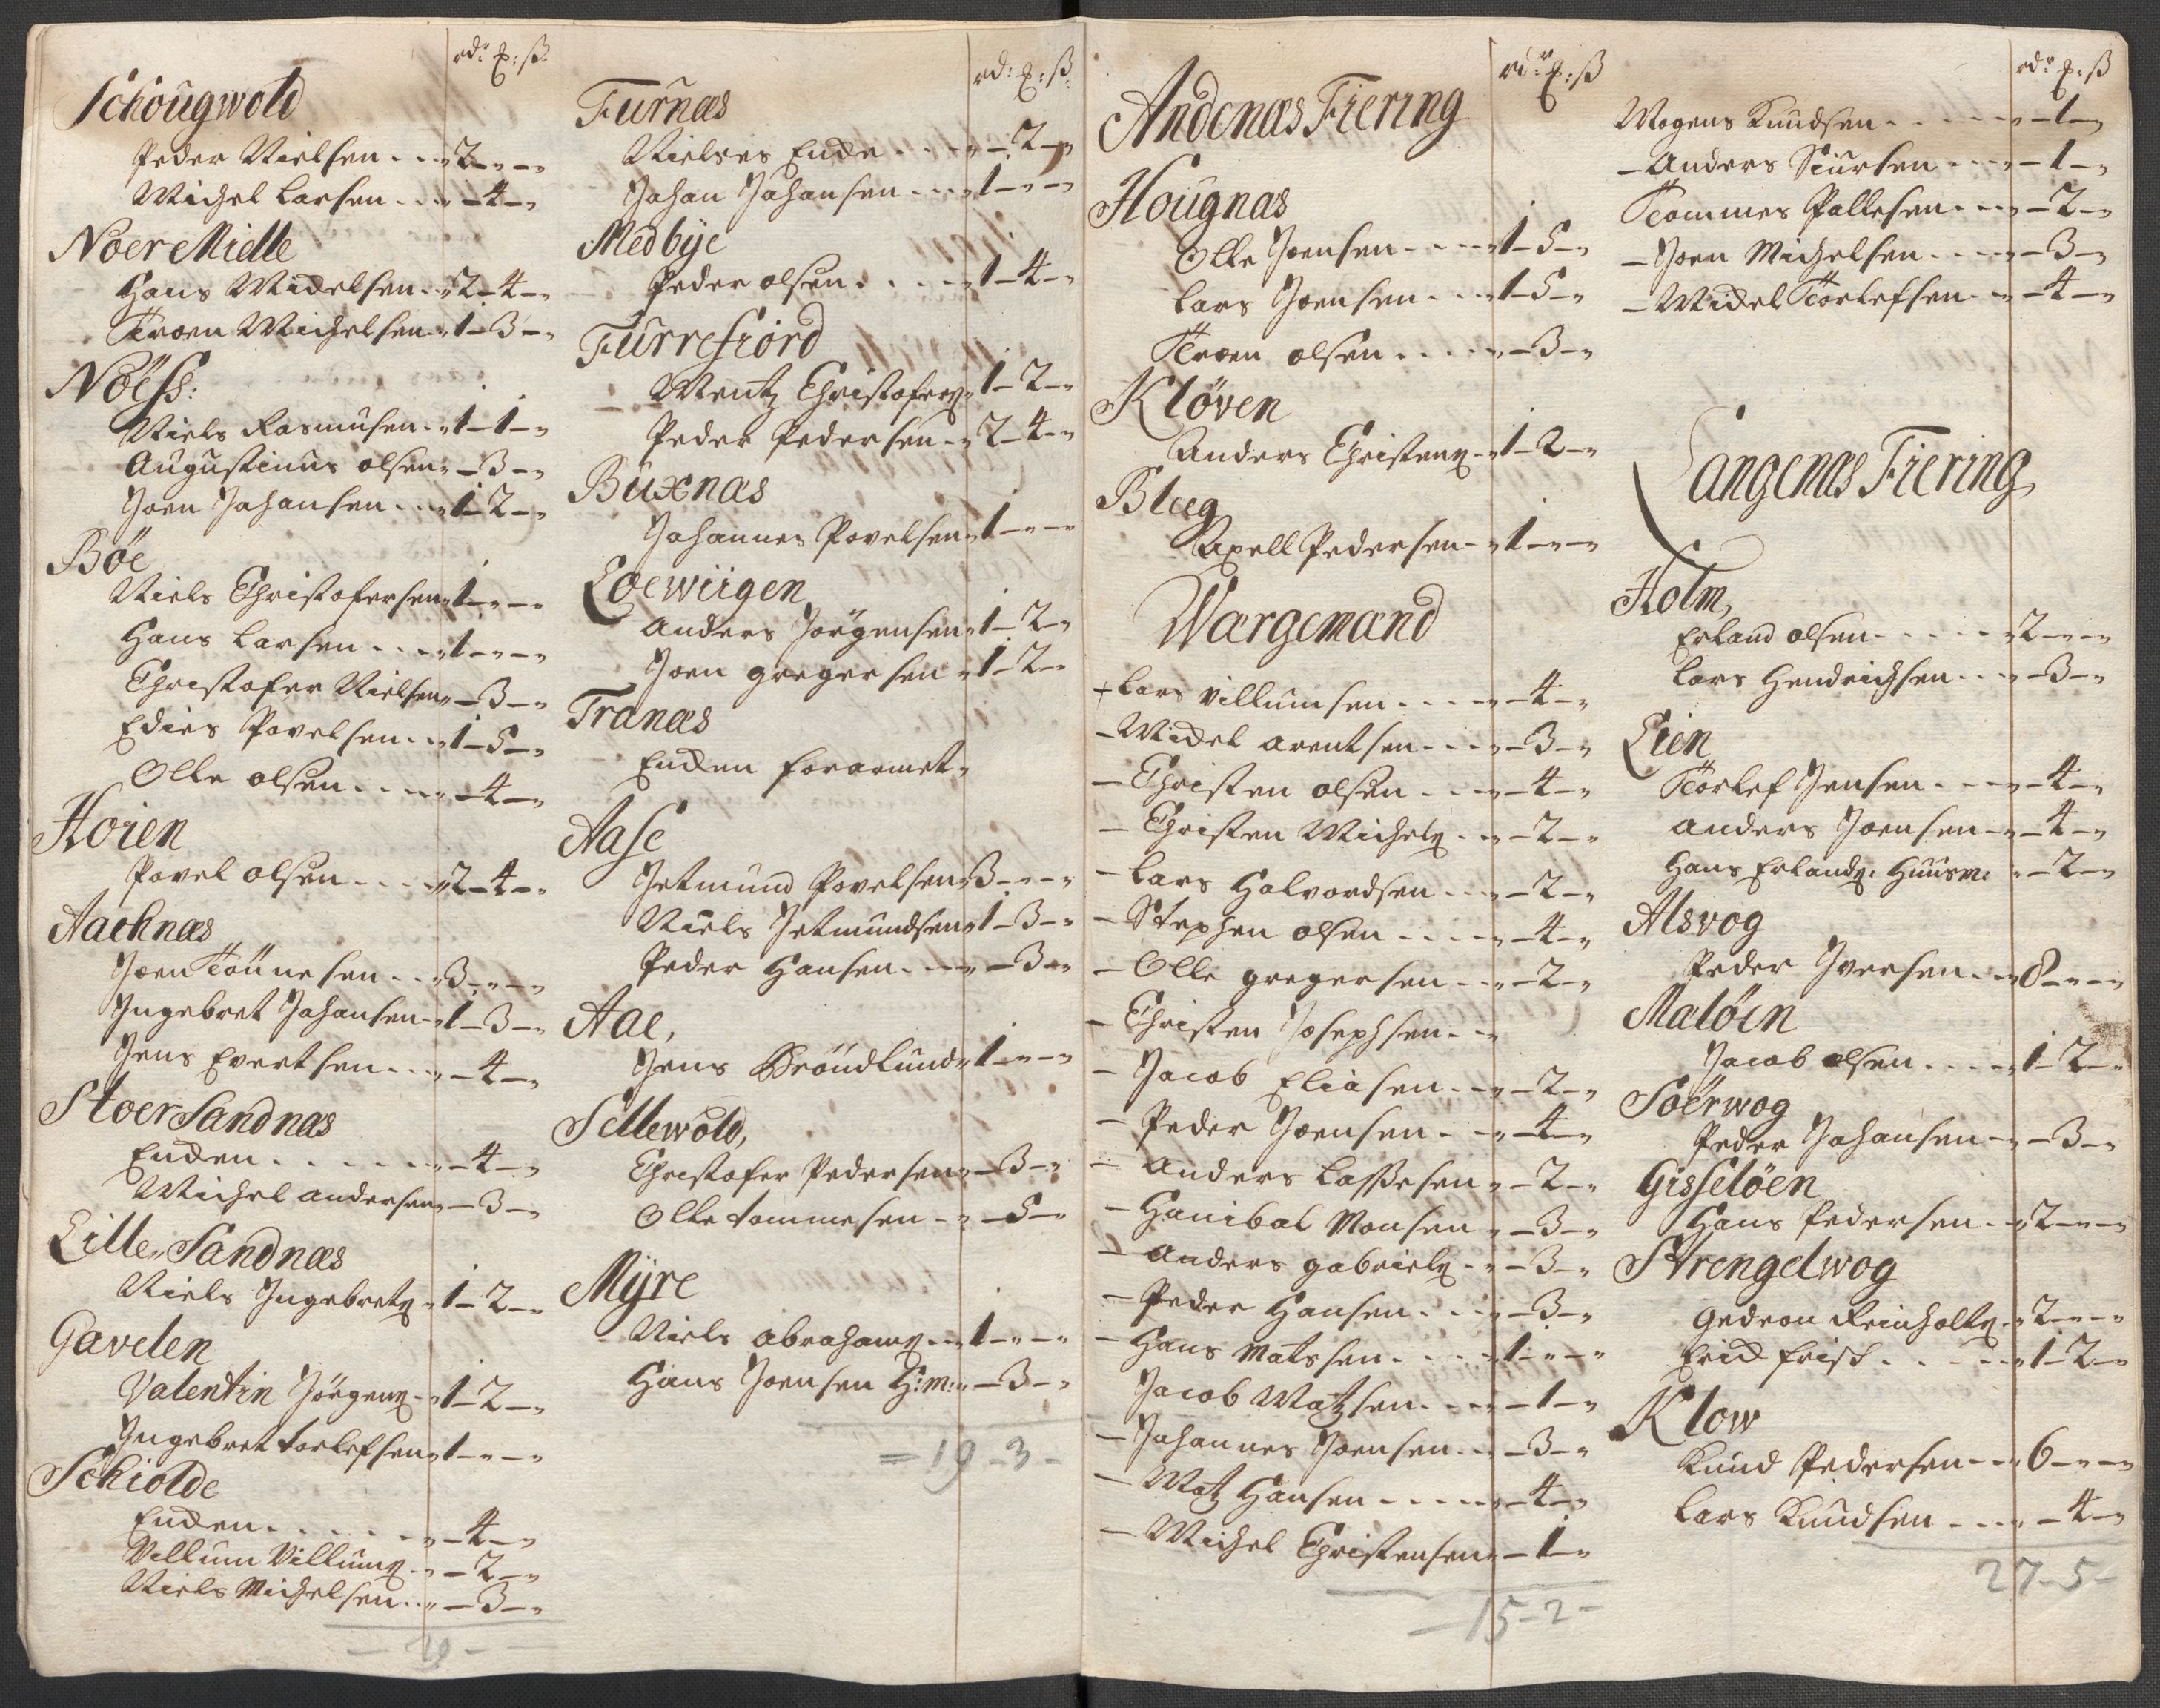 rdr ℔: ß:
Schougwold
Peder Nielsen - - - " 2 - " - "
Michel Larsen - - - " - 4 - "
Noer Mielle
Hans Michelsen - - " 2 - 4 - "
Troen Michelsen - " 1 - 3 - "
Nöess:
Niels Rasmusen - - " 1 - 1 - "
Augustinus Olsen " - 3 - "
Joen Johansen - - " 1 - 2 - "
Böe
Niels Christofersen " 1 - " - "
Hans Larsen - - - " 1 - " - "
Christofer Nielsen " - 3 - "
Edies Povelsen - - " 1 - 5 - "
Olle Olsen - - - - " - 4 - "
Hoien
Povel Olsen - - - " 2 - 4 - "
Aaknæs
Joen Tönnesen - - " 3 - " - "
Ingebret Johansen - " 1 - 3 - "
Jens Evertsen - - - " - 4 - "
Stoer Sandnæs
Enchen - - - - - - " - 4 - "
Michel Andersen " - 3 - "
Lille Sandnæs
Niels Ingebrets: " 1 - 2 - "
Gavelen
Valentin Jörgens: - " 1 - 2 - "
Ingebret Torlefsen " 1 - " - "
Schiolde
Enchen - - - - - - " - 4 - "
Villum Villums: - - " - 2 - "
Niels Michelsen - - " - 3 - "
rd: ℔: ß:
Furnæs
Nielses Encke - - - - " - 2 - "
Johan Johansen - - - " 1 - " - "
Medbÿe
Peder Olsen - - - - " 1 - 4 - "
Furrefiord
Mentz Christofers: " 1 - 2 - "
Peder Pedersen - " 2 - 4 - "
Buxnæs
Johannes Povelsen " 1 - " - "
Loewiigen
Anders Jörgensen " 1 - 2 - "
Joen Gregersen " 1 - 2 - "
Tranæs
Enchen forarmet "
Aase
Jetmund Povelsen " 3 - " - "
Niels Jetmundsen " 1 - 3 - "
Peder Hansen - - - " - 3 - "
Aae,
Jens Bröndlund " 1 - " - "
Sellewold,
Christofer Pedersen " - 3 - "
Olle Tommesen - " - 5 - "
Mÿre
Niels Abrahams: - - " 1 - " - "
Hans Joensen H:m: " - 3 - "
= 19 - 3 -
rdr ℔: ß
Andenæs Fiering
Hougnæs
Olle Joensen - - - - " 1 - 5 - "
Lars Joensen - - - " 1 - 5 - "
Troen Olsen - - - - - " - 3 - "
Klöven
Anders Christens: - " 1 - 2 - "
Bleeg
Axell Pedersen - " 1 - " - "
Wargemænd
+ Lars Villumsen - - - - " - 4 - "
- Michel Arentsen - - - " - 3 - "
- Christen Olsen - - - " - 4 - "
- Christen Michels: - - " - 2 - "
- Lars Halvordsen - - " - 2 - "
- Stephen Olsen - - - - " - 4 - "
- Olle Gregersen - - " - 2 - "
- Christen Josephsen - - "
- Jacob Eliasen - - " - 2 - "
- Peder Joensen - - " - 4 - "
- Anders Lassesen " - 2 - "
- Hanibal Monsen " - 3 - "
- Anders Gabriels: - " - 3 - "
- Peder Hansen - - - " - 3 - "
- Hans Matssen - - - - " 1 - " - "
Jacob Matzsen - - - " - 1 - "
- Johannes Joensen - - " - 3 - "
- Matz Hansen - - - - - " - 4 - "
- Michel Christensen " - 1 - "
- 15 - 2 -
rdr ℔: ß
Mogens Knudsen - - - - - " - 1 - "
- Anders Siursen - - - " - 1 - "
Tommes Pallesen - - " - 2 - "
- Joen Michelsen - - - " - 3 - "
- Michel Torlefsen - - " - 4 - "
Langenæs Fiering
Holm,
Erland Olsen - - - - - " 2 - " - "
Lars Hendrichsen - - - " - 3 - "
Lien
Torlef Jensen - - - " - 4 - "
Anders Joensen - - " - 4 - "
Hans Erlands: Huusm: " - 2 - "
Alsvog
Peder Iversen - - " 8 - " - "
Maløen
Jacob Olsen - - - - " 1 - 2 - "
Soerwog
Peder Johansen - " - 3 - "
Gisselöen
Hans Pedersen - - " 2 - " - "
Strengelwog
Gedeon Reinholts: - " 2 - " - "
Erich Frich - - - - - " 1 - 2 - "
Klow
Knud Pedersen - - " 6 - " - "
Lars Knudsen - - - - " - 4 - "
27 - 5 -